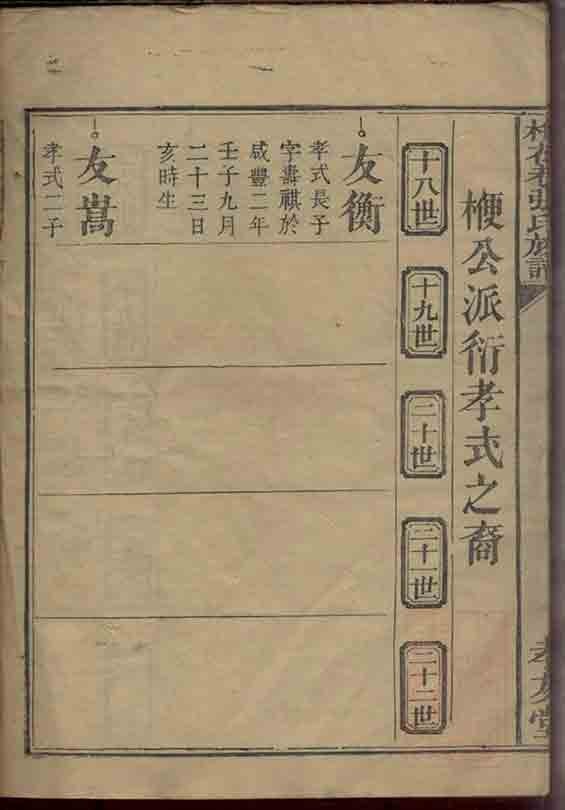 張氏族譜
孝友堂
楩公派衍孝式之裔
十八世
十九世
二十世
二十一世
二十二世
友衡
孝式長子
字壽祺於
咸豐二年
壬子九月
二十三日
亥時生
友嵩
孝式二子